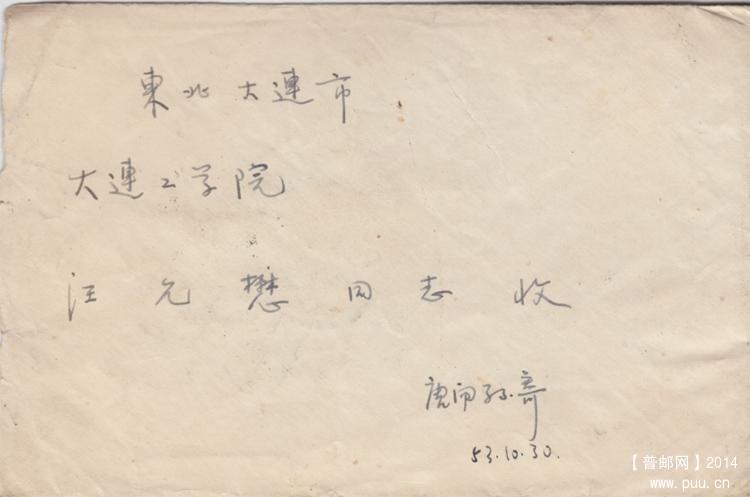 東北大連市
大連工学院
汪允懋同志收
唐 寄
53.10.30.
【普邮网】2014
www.puu.cn